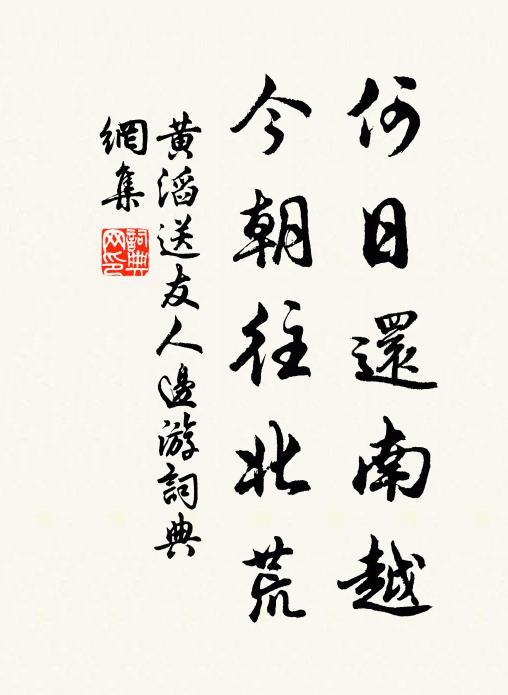 何日還南越
今朝往北荒
黄滔送友人邊游詞典
網集
詞典
网印